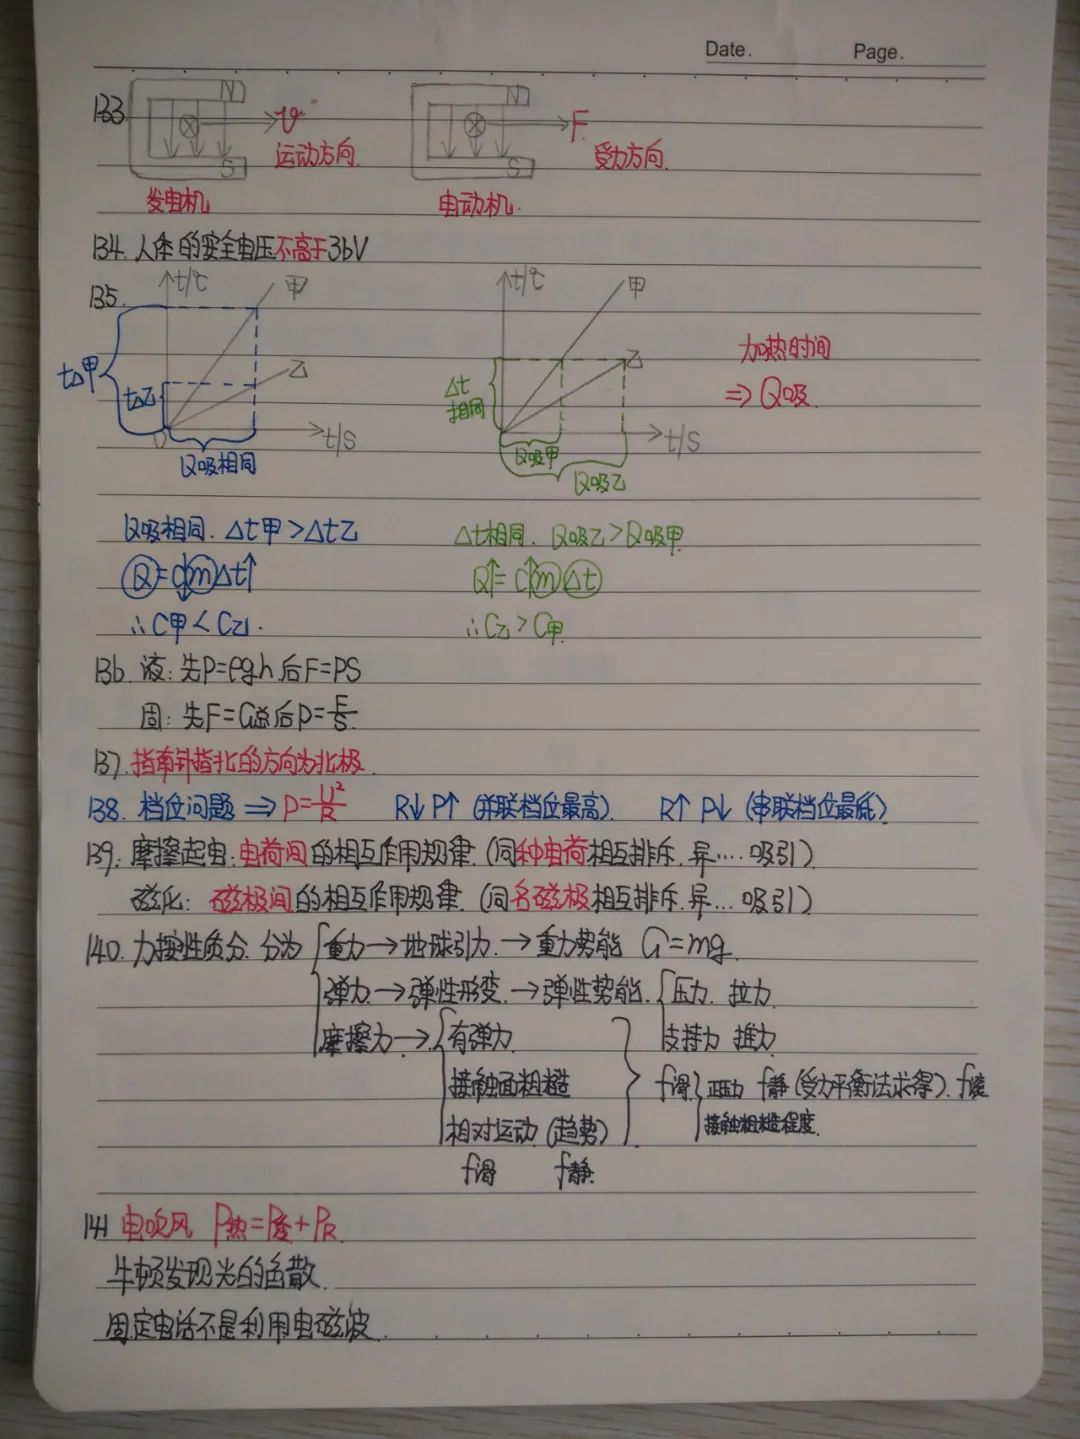 Date. Page.
133. N N
v F
S 运动方向. S 受力方向.
发电机 电动机.
134. 人体的安全电压不高于36V
135. t/℃ 甲 t/℃ 甲
乙 乙 加热时间
t△甲 t△乙 △t相同 ⇒ Q吸
0 t/s t/s
Q吸相同 Q吸甲
Q吸乙
Q吸相同. △t甲>△t乙 △t相同. Q吸乙>Q吸甲
Q=c↓m△t↑ Q↑=c↑m△t
∴C甲<C乙. ∴C乙>C甲.
136. 液: 先P=ρgh后F=PS
固: 先F=G总后P=F/S.
137. 指南针指北的方向为北极.
138. 档位问题 ⇒ P=U²/R R↓ P↑ (并联档位最高). R↑ P↓ (串联档位最低)
139. 摩擦起电: 电荷间的相互作用规律. (同种电荷相互排斥. 异.... 吸引)
磁化: 磁极间的相互作用规律. (同名磁极相互排斥. 异... 吸引)
140. 力按性质分. 分为 重力→地球引力.→重力势能 G=mg.
弹力.→弹性形变.→弹性势能. 压力. 拉力.
摩擦力→ 有弹力. 支持力 推力.
接触面粗糙 f滑 正压力 f静(受力平衡法求得). f滚
相对运动 (趋势) 接触粗糙程度.
f滑 f静.
141 电吹风 P热=P总+PR
牛顿发现光的色散.
固定电话不是利用电磁波.